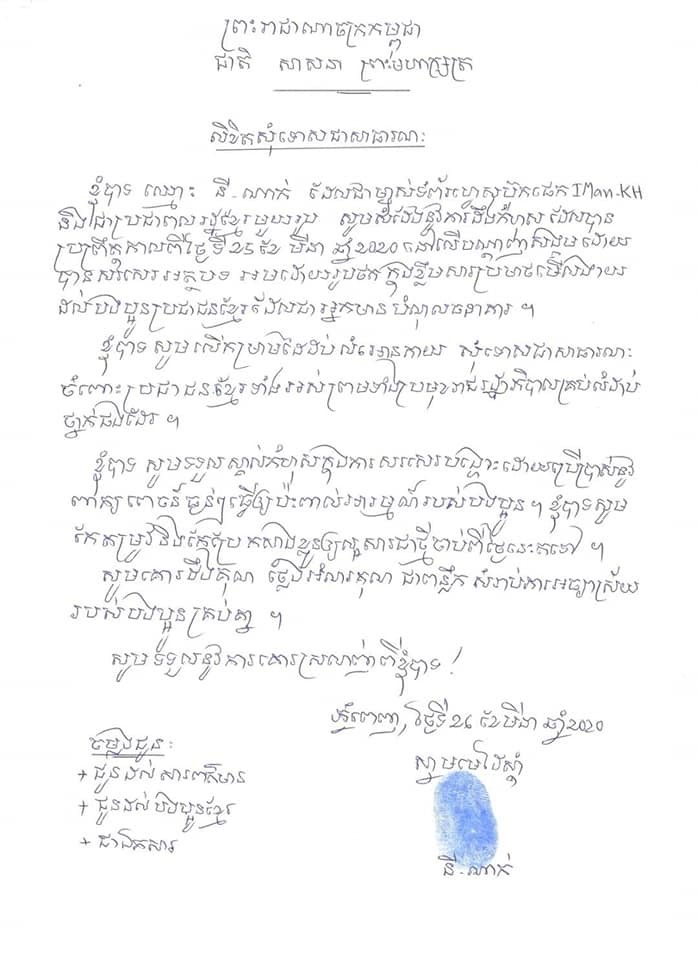 ព្រះរាជាណាចក្រកម្ពុជា
ជាតិ សាសនា ព្រះមហាក្សត្រ
លិខិតសុំទោសជាសាធារណៈ
ខ្ញុំបាទ ឈ្មោះ នី-ណាក់ ដែលជាម្ចាស់ទំព័រហ្វេសប៊ុកផេក IMan-KH
និងជាប្រជាពលរដ្ឋខ្មែរមួយរូប សូមសំដែងនូវការដឹងកំហុស ដែលបាន
ប្រព្រឹត្តកាលពីថ្ងៃទី 25 ខែ មីនា ឆ្នាំ 2020 នៅលើបណ្តាញសង្គម ដោយ
បានសរសេរអត្ថបទ អមដោយរូបថត ក្នុងខ្លឹមសារប្រមាថមើលងាយ
ដល់បងប្អូនប្រជាជនខ្មែរដែលជាអ្នកមាន បំណុលធនាគារ ។
ខ្ញុំបាទ សូមលើកម្រាមដៃដប់ លំអោនកាយ សុំទោសជាសាធារណៈ
ចំពោះប្រជាជនខ្មែរទាំងអស់ ព្រមទាំងប្រមុខរាជរដ្ឋាភិបាលគ្រប់លំដាប់
ថ្នាក់ផងដែរ ។
ខ្ញុំបាទ សូមទទួលស្គាល់កំហុសក្នុងការសរសេរបង្ហោះដោយប្រើប្រាស់នូវ
ពាក្យពេចន៍ធ្ងន់ៗធ្វើឲ្យប៉ះពាល់អារម្មណ៍របស់បងប្អូន ។ ខ្ញុំបាទសូម
កែតម្រូវនិងកែប្រែ កសាងខ្លួនឲ្យល្អសារជាថ្មីចាប់ពីថ្ងៃនេះតទៅ ។
សូមគោរពដឹងគុណ ថ្លែងអំណរគុណ ជាពន្លឹក សំរាប់ការអធ្យាស្រ័យ
របស់បងប្អូនគ្រប់គ្នា ។
សូមទទួលនូវការគោរពស្រលាញ់ពីខ្ញុំបាទ !
ភ្នំពេញ, ថ្ងៃទី 26 ខែ មីនា ឆ្នាំ 2020
ស្នាមមេដៃស្តាំ
ចម្លងជូន:
+ ជូនដល់ សារព័ត៌មាន
+ ជូនដល់ បងប្អូនខ្មែរ
+ ជាឯកសារ
នី-ណាក់